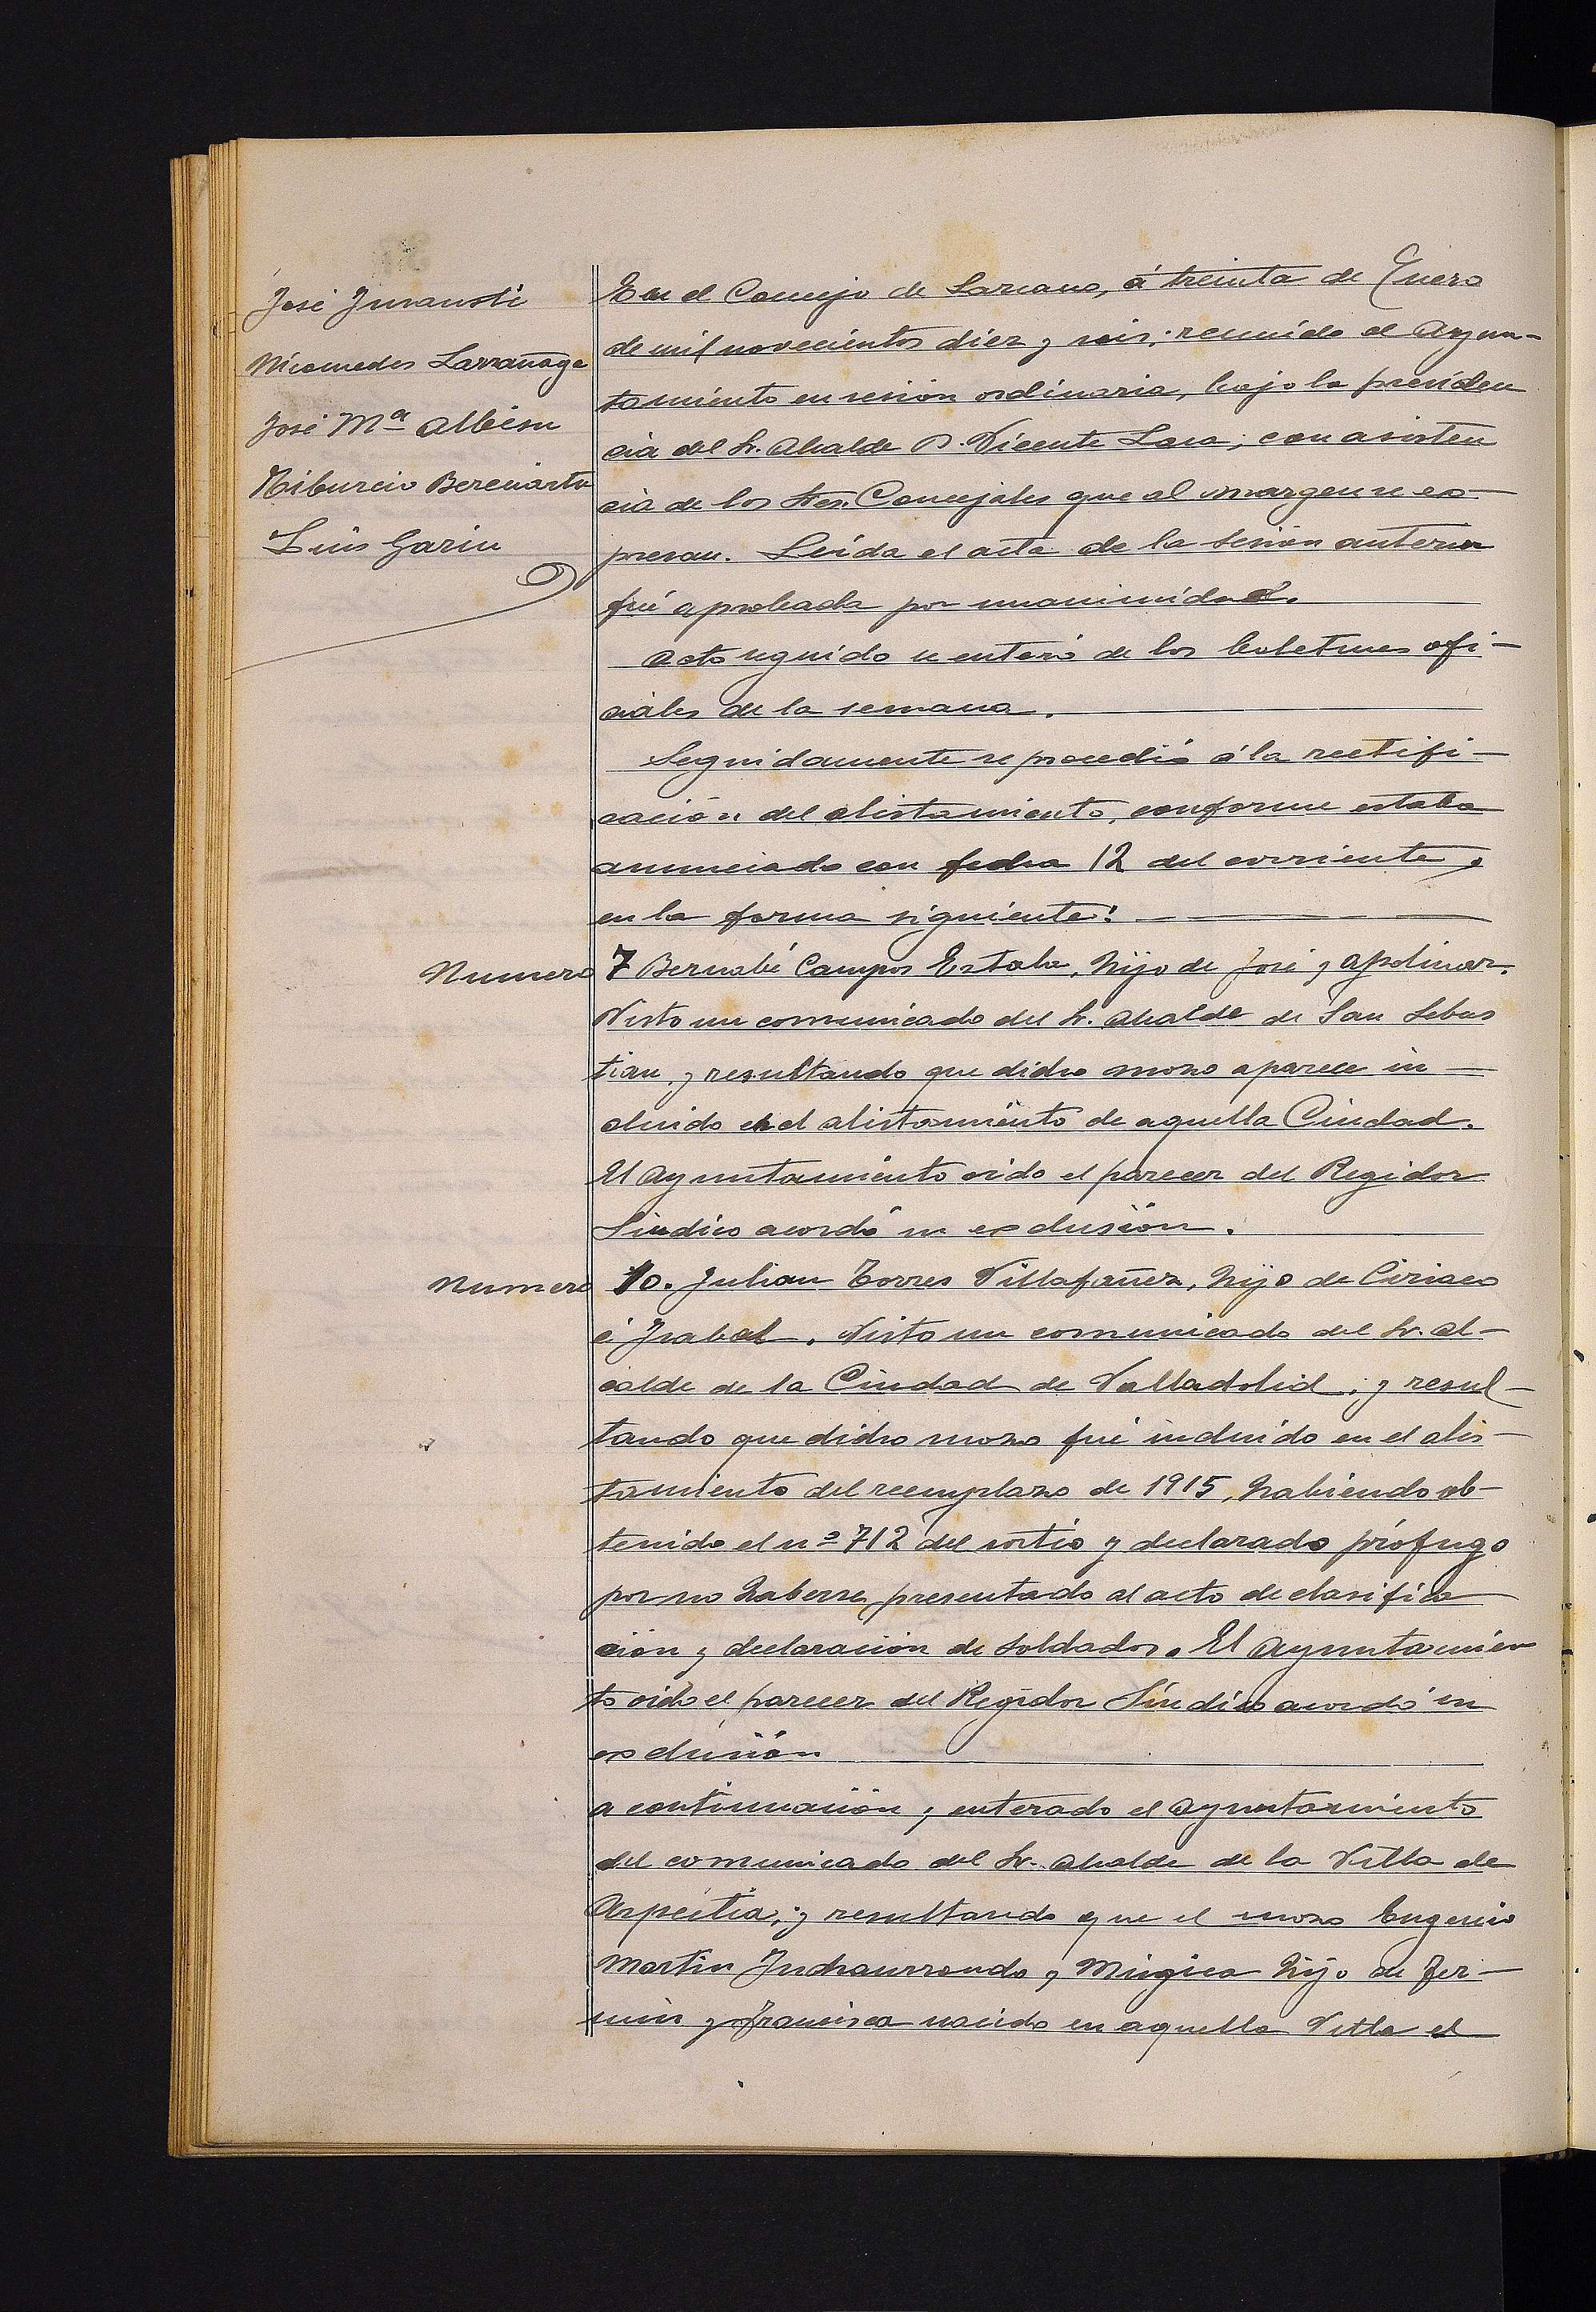 José Ynnausti
Nicomedes Larrañaga
José Mª Albisu
Tiburcio Bereciartu
Luis Garin
En el Concejo de Lazcano, á treinta de Enero
de mil novecientos diez y seis; reunido el Ayun-
tamiento en sesión ordinaria, bajo la presiden
cia del Sr. Alcalde D. Vicente Lasa; con asisten
cia de los Sres. Concejales que al margen se ex-
presan. Leida el acta de la sesión anterior
fué aprobada por unanimidad.
Acto seguido se enteró de los boletines ofi-
ciales de la semana.
Seguidamente se procedió á la rectifi-
cación del alistamiento, conforme estaba
anunciado con fecha 12 del corriente,
en la forma siguiente:
Numero 7 Bernabé Campos Estala, hijo de José y Apolinar.
Visto un comunicado del Sr. Alcalde de San Sebas
tian, y resultando que dicho mozo aparece in-
cluido en el alistamiento de aquella Ciudad.
El Ayuntamiento oido el parecer del Regidor
Sindico acordó su exclusión.
Numero 10. Julian Torres Villafañez, hijo de Ciriaco
é Isabel. Visto un comunicado del Sr. Al-
calde de la Ciudad de Valladolid; y resul-
tando que dicho mozo fué incluido en el alis-
tamiento del reemplazo de 1915, habiendo ob-
tenido el nº 712 del sorteo y declarado prófugo
por no haberse presentado al acto de clasifica
ción y declaración de soldados. El Ayuntamien
to oido el parecer del Regidor Síndico acordó su
exclusión
A continuación, enterado el Ayuntamiento
del comunicado del Sr. Alcalde de la Villa de
Azpeitia, y resultando que el mozo Eugenio
Martin Inchaurrondo y Múgica hijo de Fer-
min y Francisca nacido en aquella Villa el